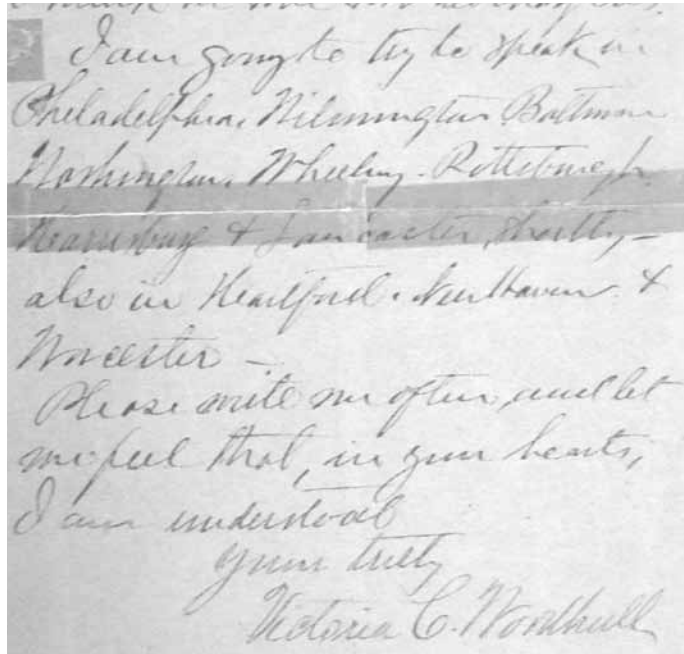 I am going to try to speak in
Philadelphia, Wilmington Baltimore
Washington, Wheeling - Pittsburgh,
Harrisburg & Lancaster, shortly, -
also in Hartford. New Haven &
Worcester -
Please write me often, and let
me feel that, in your hearts,
I am understood
Yours truly
Victoria C. Woodhull